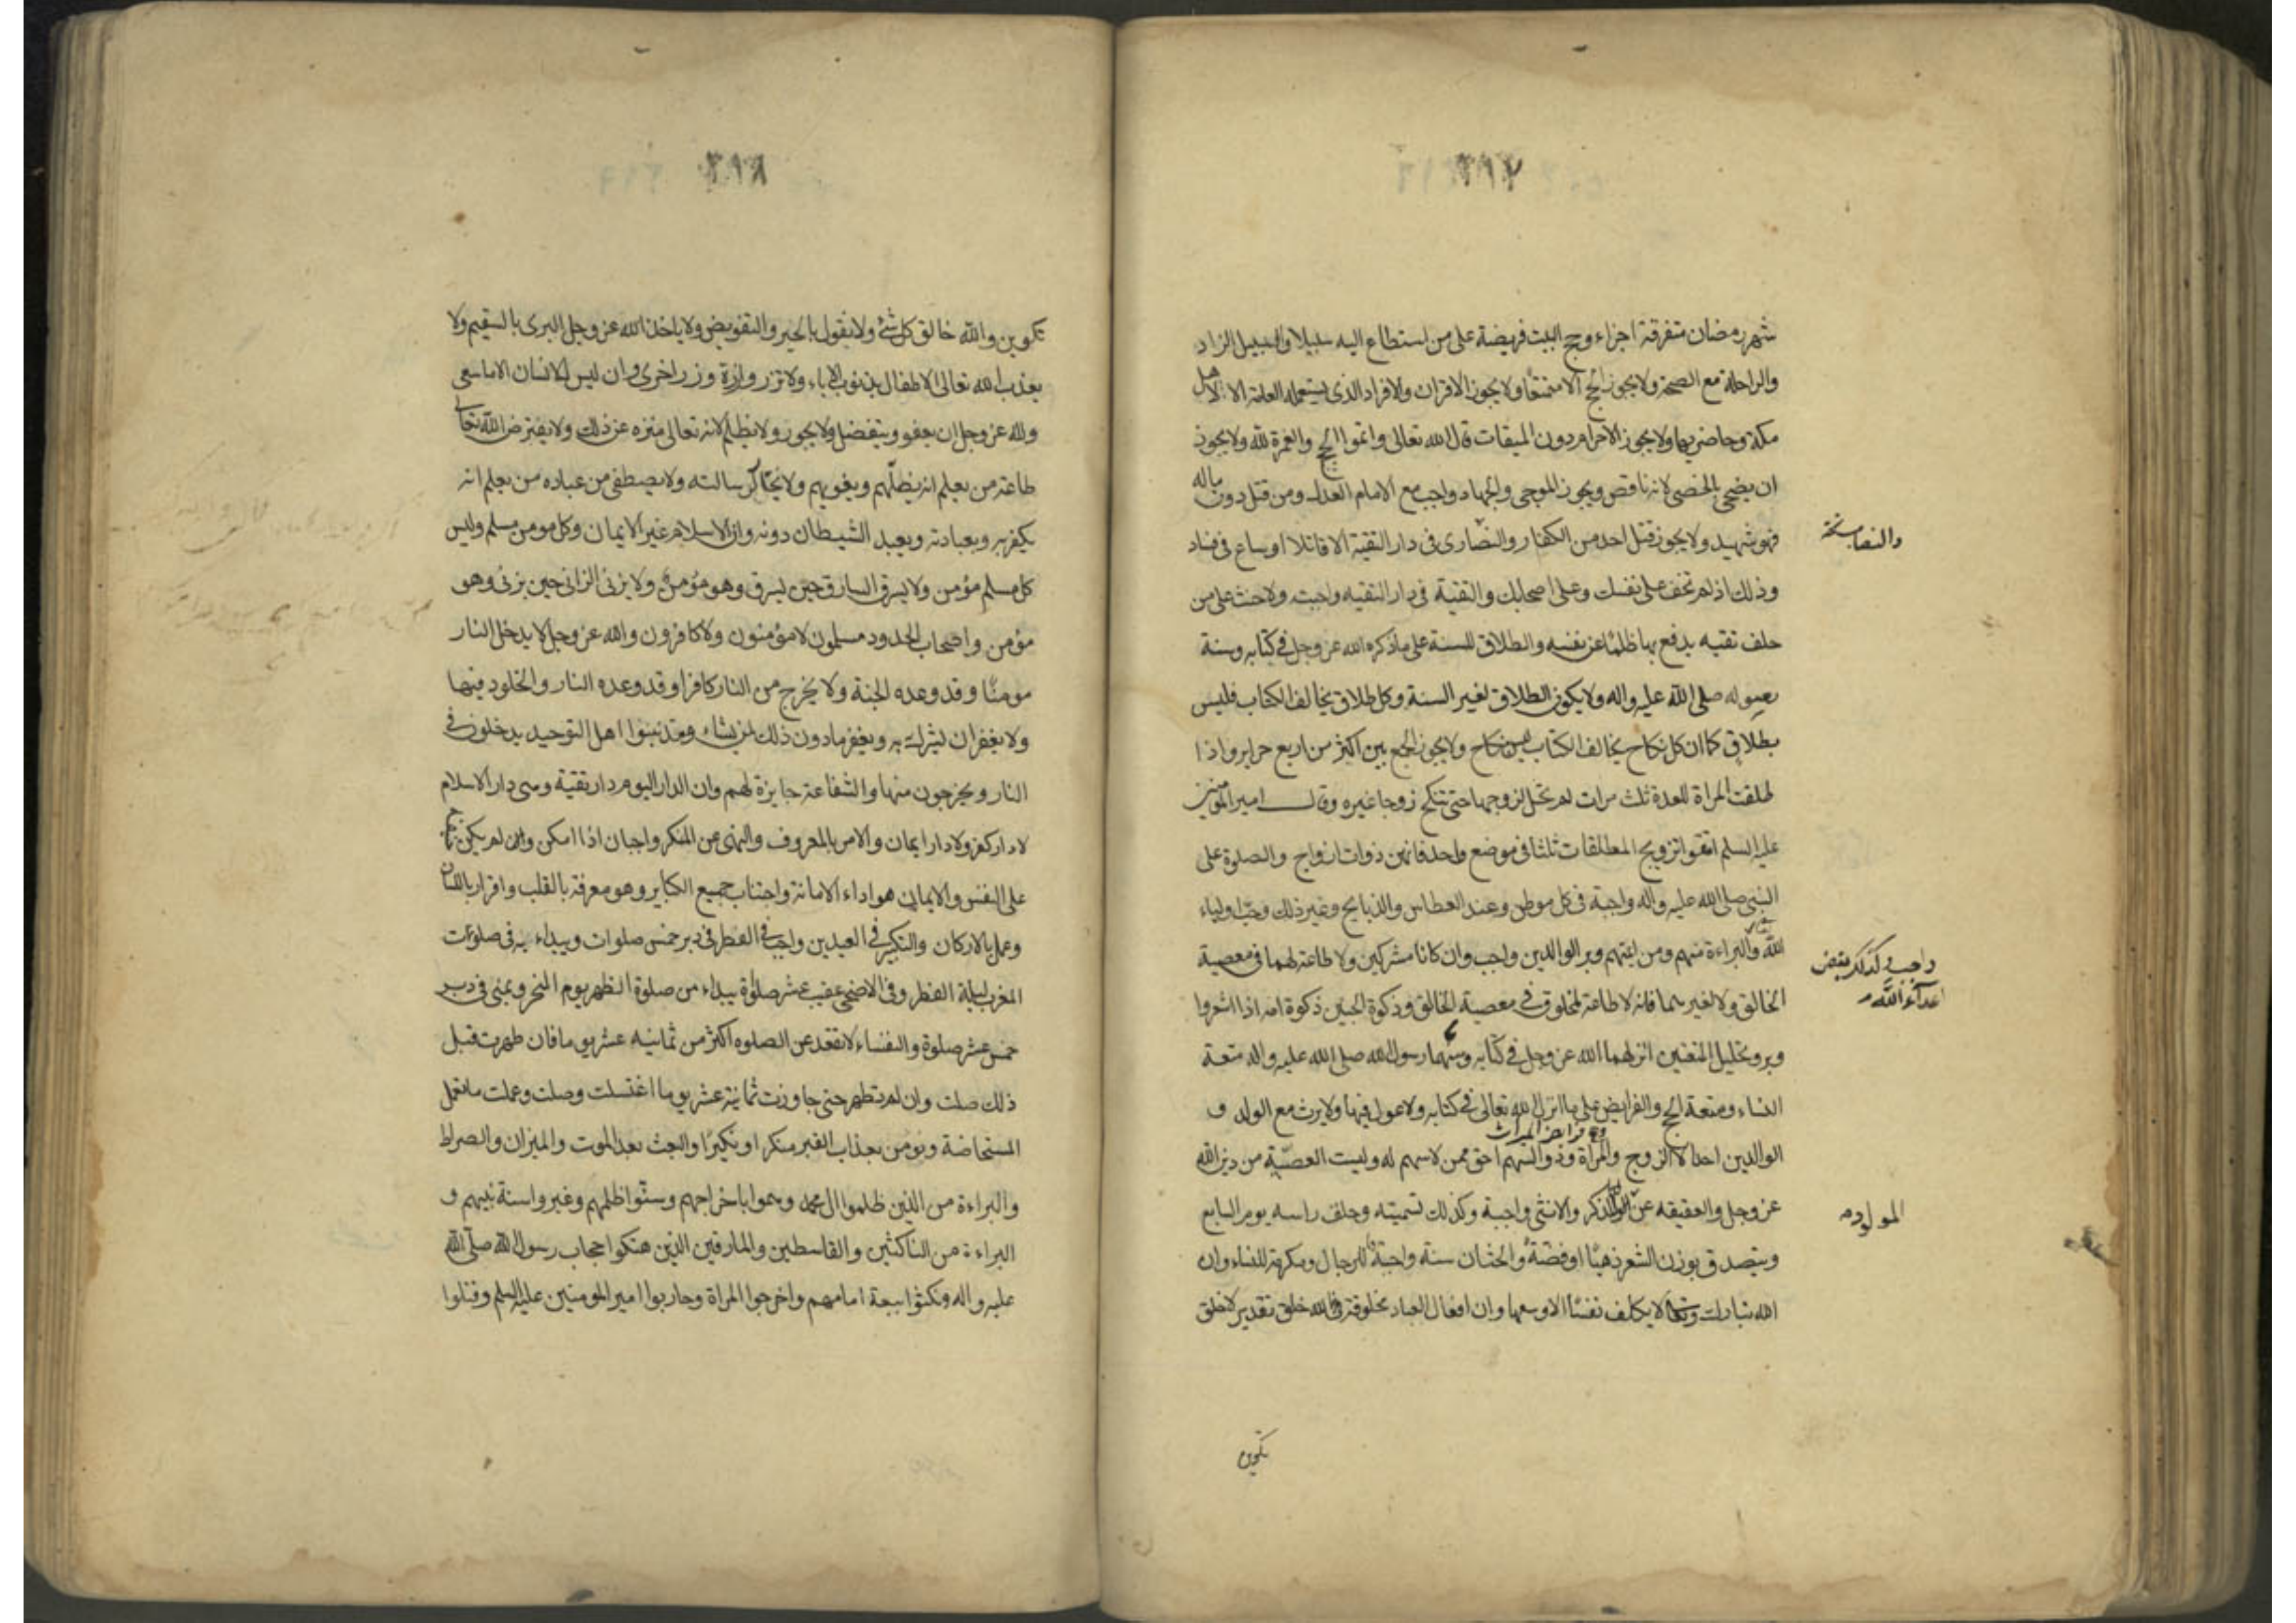 ٣٩٧
شهر رمضان متفرقة اجزاء وحج البيت فريضة على من استطاع اليه سبيلا والسبيل الزاد
والراحلة مع الصحة ولا يجوز الحج الا متمتعا ولا يجوز الاقران والافراد الذى يستعمله العامة الا لاهل
مكة وحاضريها ولا يجوز الاحرام دون الميقات قال الله تعالى واتموا الحج والعمرة لله ولا يجوز
ان يضحى بالخصى لانه ناقص ويجوز الموجى والجهاد واجب مع الامام العدل ومن قتل دون ماله
فهو شهيد ولا يجوز قتل احد من الكفار والنصارى فى دار التقية الا قاتلا او ساع فى فساد
والنصاب نسخة
وذلك اذ لم تخف على نفسك وعلى اصحابك والتقية فى دار التقيه واجبة ولا حنث على من
حلف تقيه يدفع بها ظلما عن نفسه والطلاق للسنة على ما ذكره الله عز وجل فى كتابه وسنة
رسوله صلى الله عليه واله ولا يكون الطلاق لغير السنة وكل طلاق يخالف الكتاب فليس
بطلاق كما ان كل نكاح يخالف الكتاب فليس بنكاح ولا يجوز الجمع بين اكثر من اربع حراير واذا
طلقت المراة للعدة ثلث مرات لم تحل لزوجها حتى تنكح زوجا غيره وقال امير المؤمنين
عليه السلم اتقوا تزويج المطلقات ثلثا فى موضع واحد فانهن ذوات ازواج والصلوة على
النبى صلى الله عليه واله واجبة فى كل موطن وعند العطاس والذبايح وغير ذلك وحب اولياء
الله والبراءة منهم ومن ايمتهم وبر الوالدين واجب وان كانا مشركين ولا طاعة لهما فى معصية
واجب وكذلك بغض
اعداء الله
الخالق ولا لغيرهما فانه لا طاعة لمخلوق فى معصية الخالق وذكوة الجنين ذكوة امه اذا اشعر وا
وبر وتحليل المتعتين انزلهما الله عز وجل فى كتابه وسنهما رسول الله صلى الله عليه واله متعة
النساء ومتعة الحج والفرايض على ما انزل الله تعالى فى كتابه ولا عول فيها ولا يرث مع الولد و
الوالدين احد الا الزوج والمراة وذو السهم احق ممن لا سهم له وليست العصبة من دين الله
عز وجل والعقيقه عن الولد الذكر والانثى واجبة وكذلك تسميته وحلق راسه يوم السابع
المولود
ويتصدق بوزن الشعر ذهبا او فضة والختان سنة واجبة للرجال ومكرمة للنساء وان
الله تبارك وتعالى لا يكلف نفسا الا وسعها وان افعال العباد مخلوقة لله خلق تقدير لا خلق
تكوين
٣٩٨
تكوين والله خالق كل شئ ولا نقول بالجبر والتفويض ولا ياخذ الله عز وجل البرى بالسقيم ولا
يعذب الله تعالى الاطفال بذنوب الاباء ولا تزر وازرة وزر اخرى وان ليس للانسان الا ما سعى
ولله عز وجل ان يعفو ويتفضل ولا يجور ولا يظلم لانه تعالى منزه عن ذلك ولا يفترض الله تعالى
طاعة من يعلم انه يضلهم ويغويهم ولا يختار لرسالته ولا يصطفى من عباده من يعلم انه
يكفر به وبعبادته ويعبد الشيطان دونه وان الاسلام غير الايمان وكل مومن مسلم وليس
كل مسلم مؤمن ولا يسرق السارق حين يسرق وهو مؤمن ولا يزنى الزانى حين يزنى وهو
مؤمن واصحاب الحدود مسلمون لا مؤمنون ولا كافرون والله عز وجل لا يدخل النار
مومنا وقد وعده الجنة ولا يخرج من النار كافرا وقد وعده النار والخلود فيها
ولا يغفر ان يشرك به ويغفر ما دون ذلك لمن يشاء ومذنبوا اهل التوحيد يدخلون فى
النار ويخرجون منها والشفاعة جايزة لهم وان الدار اليوم دار تقية وهى دار الاسلام
لا دار كفر ولا دار ايمان والامر بالمعروف والنهى عن المنكر واجبان اذا امكن وان لم يكن خيفة
على النفس والايمان هو اداء الامانة واجتناب جميع الكباير وهو معرفة بالقلب واقرار باللسان
وعمل بالاركان والتكبير فى العيدين واجب فى الفطر فى دبر خمس صلوات ويبداء به فى صلوة
المغرب ليلة الفطر وفى الاضحى عقيب عشر صلوة يبداء من صلوة الظهر يوم النحر وبمنى فى دبر
خمس عشر صلوة والنفساء لا تقعد عن الصلوه اكثر من ثمانيه عشر يوما فان طهرت قبل
ذلك صلت وان لم تطهر حتى جاوزت ثمانية عشر يوما اغتسلت وصلت وعملت ما تعمل
المستحاضة ونومن بعذاب القبر ومنكر ونكيرا والبعث بعد الموت والميزان والصراط
والبراءة من الذين ظلموا ال محمد وهموا باخراجهم وسنوا ظلمهم وغيروا سنة نبيهم و
البراءة من الناكثين والقاسطين والمارقين الذين هتكوا حجاب رسول الله صلى الله
عليه واله ونكثوا بيعة امامهم واخرجوا المراة وحاربوا امير المومنين عليه السلم وقتلوا